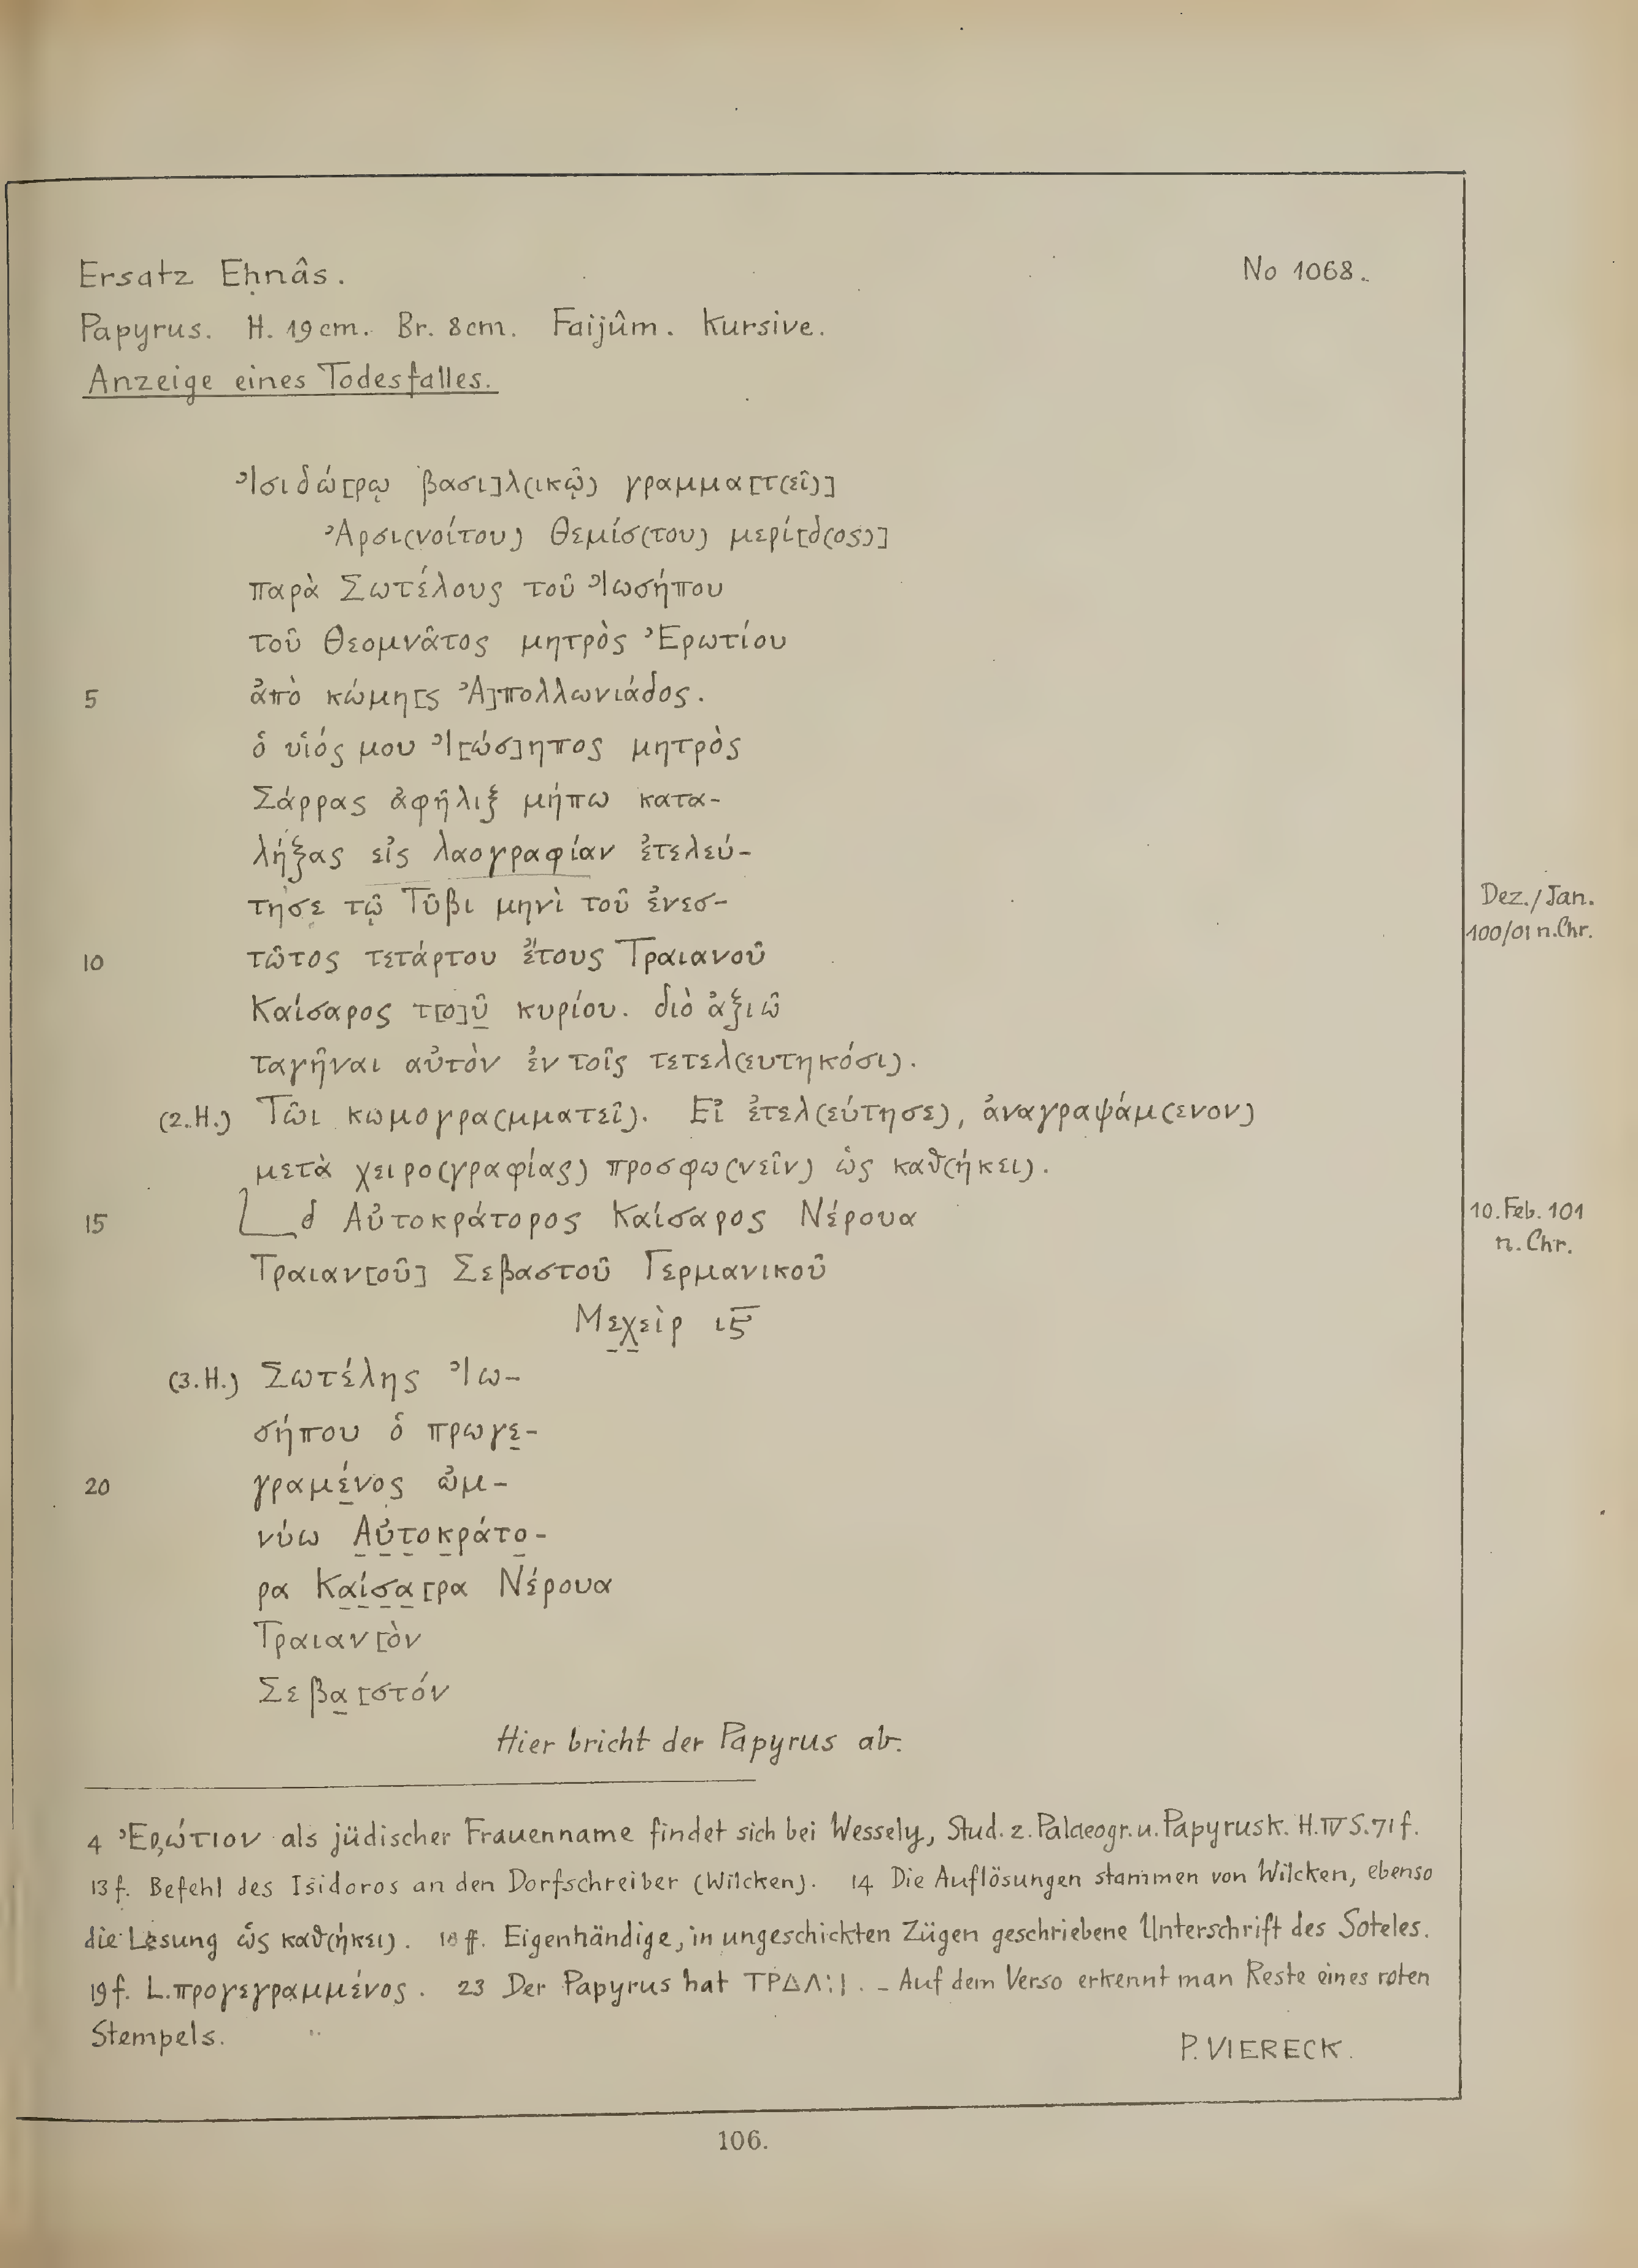 Ersatz Eḥnâs. No 1068.
Papyrus. H. 19cm. Br. 8cm. Faijûm. Kursive.
Anzeige eines Todesfalles.
Ἰσιδώ[ρῳ βασι]λ(ικῷ) γραμμα[τ(εῖ)]
Ἀρσι(νοίτου) Θεμίσ(του) μερί[δ(ος)]
παρὰ Σωτέλους τοῦ Ἰωσήπου
τοῦ Θεομνᾶτος μητρὸς Ἐρωτίου
5 ἀπὸ κώμη[ς Ἀ]πολλωνιάδος.
ὁ υἱός μου Ἰ[ώσ]ηπος μητρὸς
Σάρρας ἀφῆλιξ μήπω κατα-
λήξας εἰς λαογραφίαν ἐτελεύ-
τησε τῷ Τῦβι μηνὶ τοῦ ἐνεσ-
Dez./Jan.
100/01 n.Chr.
10 τῶτος τετάρτου ἔτους Τραιανοῦ
Καίσαρος τ[ο]ῦ κυρίου. διὸ ἀξιῶ
ταγῆναι αὐτὸν ἐν τοῖς τετελ(ευτηκόσι).
(2.H.) Τῶι κωμογρα(μματεῖ). Εἰ ἐτελ(εύτησε), ἀναγραψάμ(ενον)
μετὰ χειρο(γραφίας) προσφω(νεῖν) ὡς καθ(ήκει).
15 L δ Αὐτοκράτορος Καίσαρος Νέρουα
10. Feb. 101
n. Chr.
Τραιαν[οῦ] Σεβαστοῦ Γερμανικοῦ
Μεχεὶρ ιϛ
(3.H.) Σωτέλης Ἰω-
σήπου ὁ πρωγε-
20 γραμένος ὠμ-
νύω Αὐτοκράτο-
ρα Καίσα[ρα Νέρουα
Τραιαν[ὸν
Σεβα[στόν
Hier bricht der Papyrus ab.
4 Ἐρώτιον als jüdischer Frauenname findet sich bei Wessely, Stud. z. Palaeogr. u. Papyrusk. H. IV S. 71 f.
13 f. Befehl des Isidoros an den Dorfschreiber (Wilcken). 14 Die Auflösungen stammen von Wilcken, ebenso
die Lesung ὡς καθ(ήκει). 18 ff. Eigenhändige, in ungeschickten Zügen geschriebene Unterschrift des Soteles.
19 f. L. προγεγραμμένος. 23 Der Papyrus hat ΤΡΔΛ:Ι. – Auf dem Verso erkennt man Reste eines roten
Stempels.
P. VIERECK.
106.